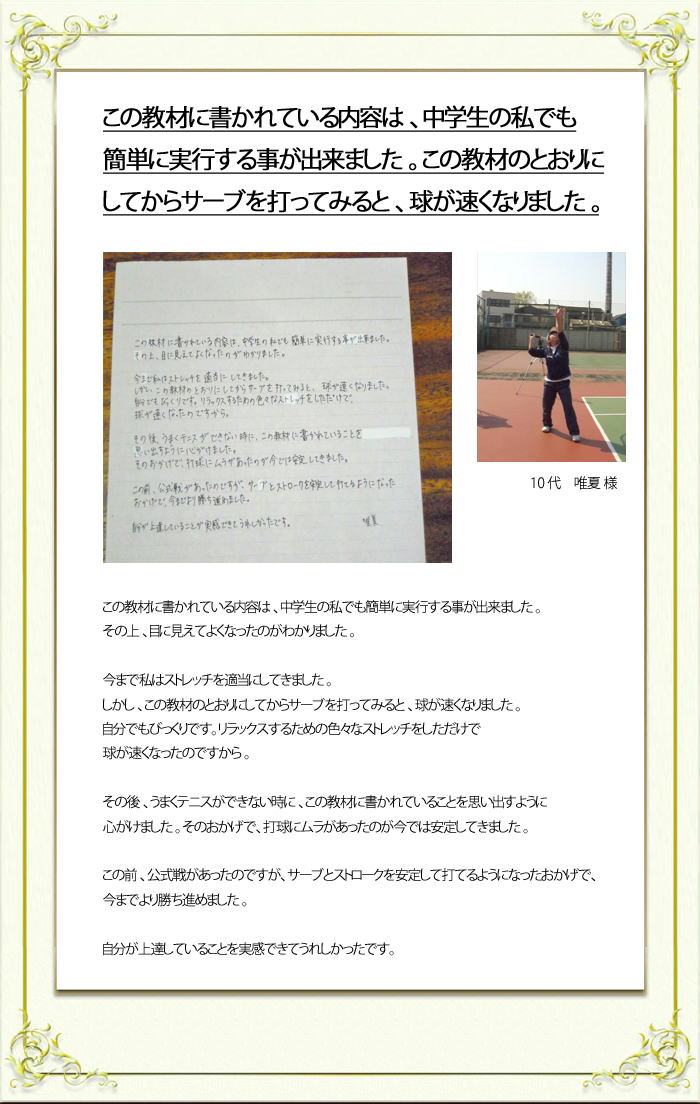 この教材に書かれている内容は、中学生の私でも
簡単に実行する事が出来ました。この教材のとおりに
してからサーブを打ってみると、球が速くなりました。
この教材に書かれている内容は、中学生の私でも簡単に実行する事が出来ました。
その上、目に見えてよくなったのがわかりました。
今まで私はストレッチを適当にしてきました。
しかし、この教材のとおりにしてからサーブを打ってみると、球が速くなりました。
自分でもびっくりです。リラックスするための色々なストレッチをしただけで、
球が速くなったのですから。
その後、うまくテニスができない時に、この教材に書かれていることを
思い出すように心がけました。
そのおかげで、打球にムラがあったのが今では安定してきました。
この前、公式戦があったのですが、サーブとストロークを安定して打てるようになった
おかげで、今までより勝ち進めました。
自分が上達していることが実感できてうれしかったです。
唯夏
10代 唯夏 様
この教材に書かれている内容は、中学生の私でも簡単に実行する事が出来ました。
その上、目に見えてよくなったのがわかりました。
今まで私はストレッチを適当にしてきました。
しかし、この教材のとおりにしてからサーブを打ってみると、球が速くなりました。
自分でもびっくりです。リラックスするための色々なストレッチをしただけで
球が速くなったのですから。
その後、うまくテニスができない時に、この教材に書かれていることを思い出すように
心がけました。そのおかげで、打球にムラがあったのが今では安定してきました。
この前、公式戦があったのですが、サーブとストロークを安定して打てるようになったおかげで、
今までより勝ち進めました。
自分が上達していることを実感できてうれしかったです。